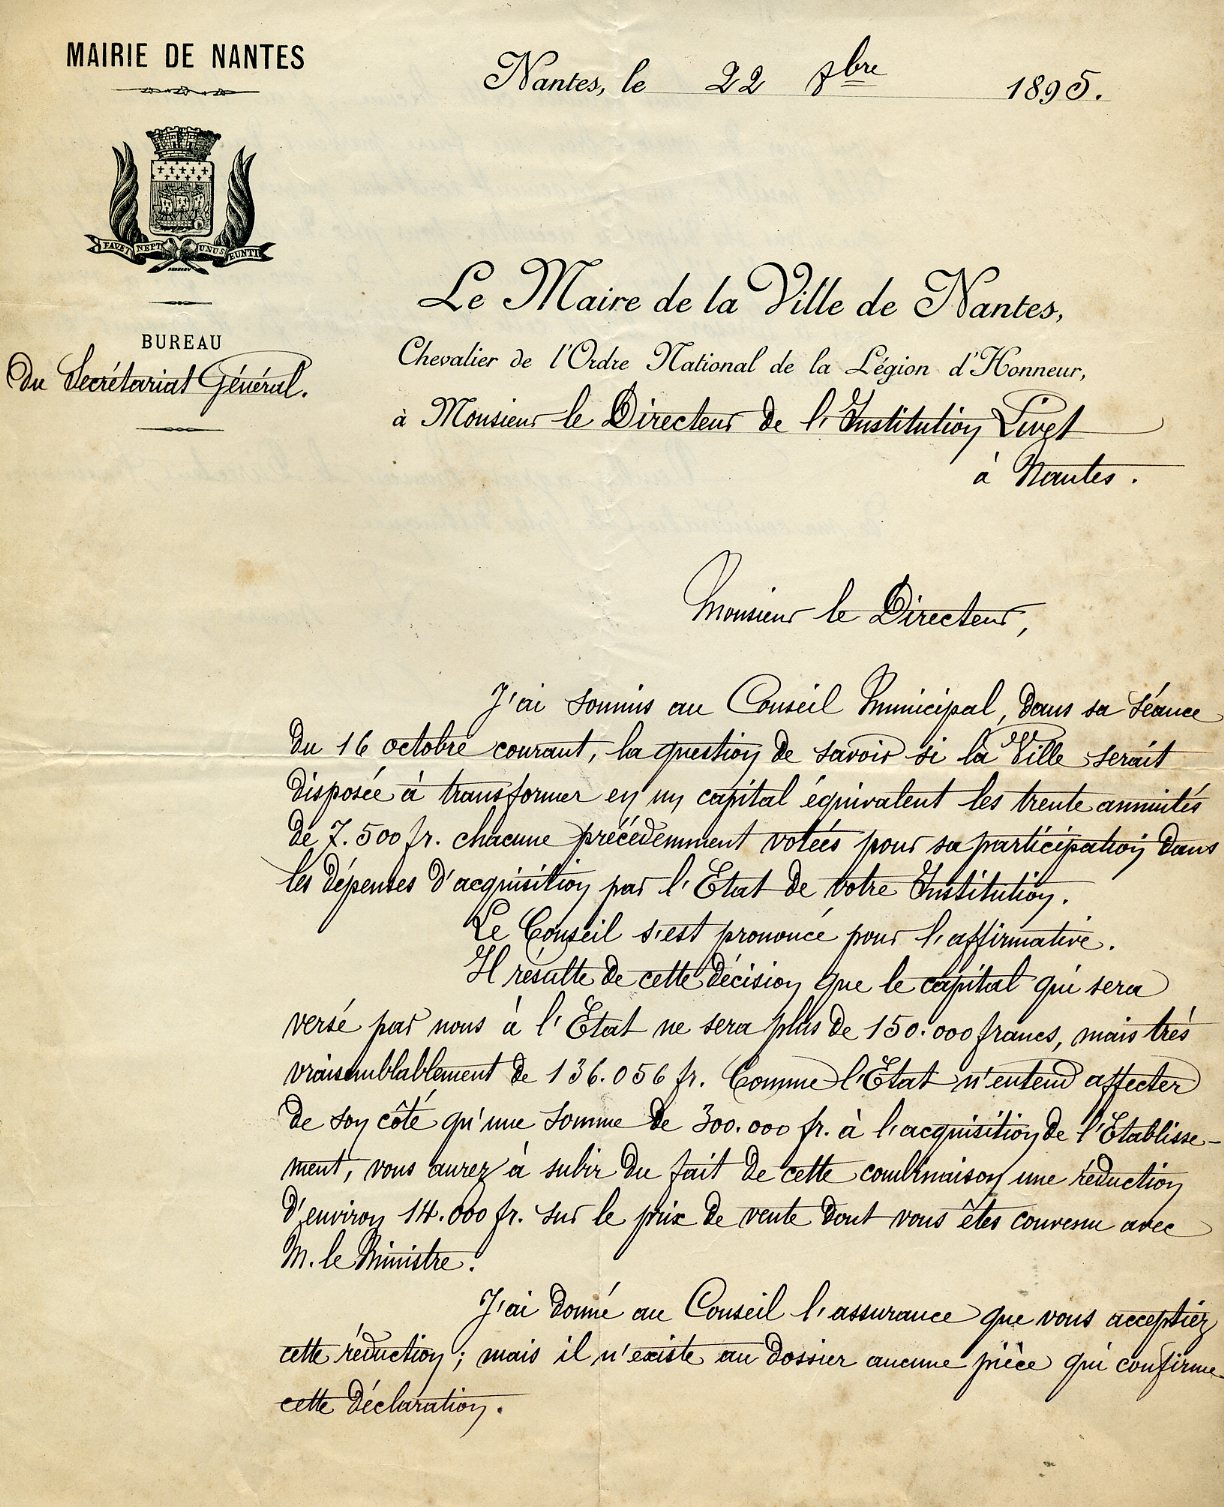 MAIRIE DE NANTES
Nantes, le 22 8bre 1895.
FAVET NEPTUNUS EUNTI
BUREAU
du Secrétariat Général.
Le Maire de la Ville de Nantes,
Chevalier de l'Ordre National de la Légion d'Honneur,
à Monsieur le Directeur de l'Institution Livet
à Nantes.
Monsieur le Directeur,
J'ai soumis au Conseil Municipal, dans sa séance
du 16 octobre courant, la question de savoir si la Ville serait
disposée à transformer en un capital équivalent les trente annuités
de 7.500 fr. chacune précédemment votées pour sa participation dans
les dépenses d'acquisition par l'Etat de votre Institution.
Le Conseil s'est prononcé pour l'affirmative.
Il résulte de cette décision que le capital qui sera
versé par nous à l'Etat ne sera plus de 150.000 francs, mais très
vraisemblablement de 136.056 fr. Comme l'Etat n'entend affecter
de son côté qu'une somme de 300.000 fr. à l'acquisition de l'Etablisse-
ment, vous aurez à subir du fait de cette combinaison une réduction
d'environ 14.000 fr. sur le prix de vente dont vous êtes convenu avec
M. le Ministre.
J'ai donné au Conseil l'assurance que vous acceptiez
cette réduction ; mais il n'existe au dossier aucune pièce qui confirme
cette déclaration.